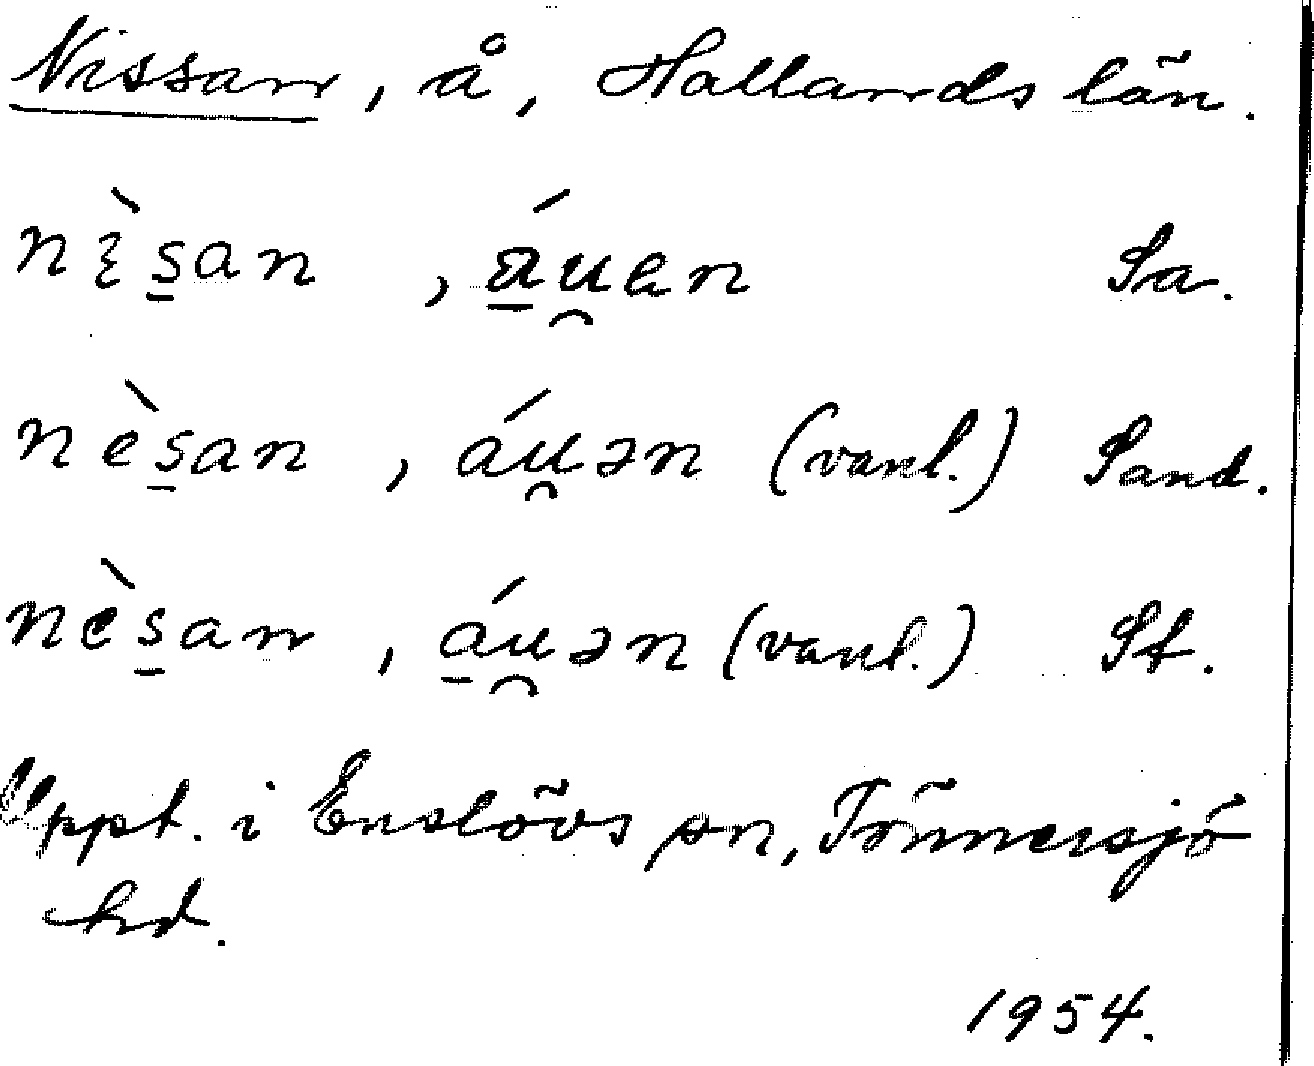 Nissan, å, Hallands län.
nɛ̀s̱an , á̱u̯an Sa.
nès̱an , áu̯ən (vanl.) Sand.
nès̱an , á̱u̯ən (vanl.) St.
Uppt. i Enslövs sn, Tönnersjö
hd.
1954.